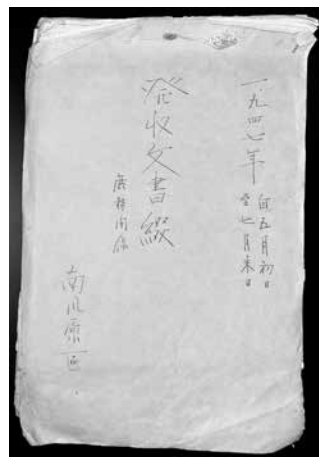 一九四七年
自五月初日
至七月末日
発收文書綴
庶務関係
南川原区